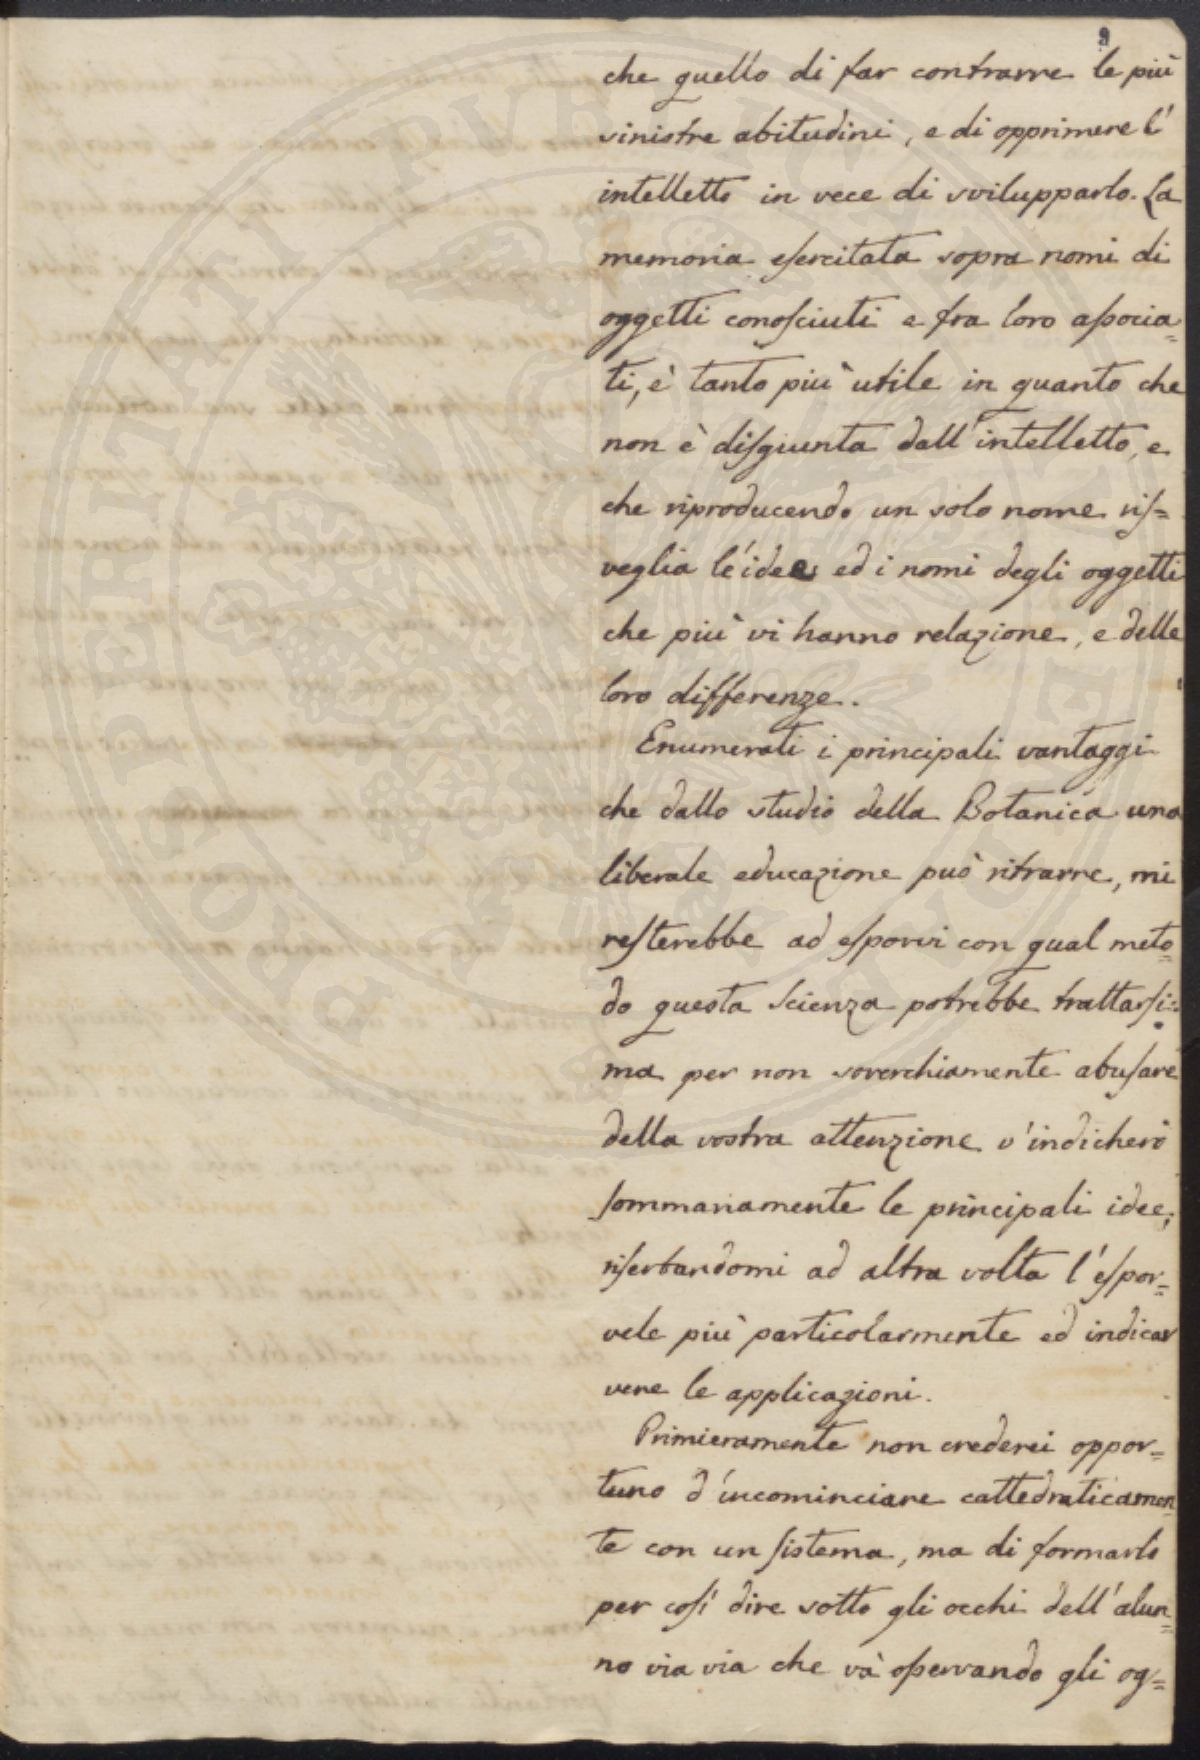 9
che quello di far contrarre le più
sinistre abitudini, e di opprimere l'
intelletto in vece di svilupparlo. La
memoria esercitata sopra nomi di
oggetti conosciuti e fra loro associa=
ti, è tanto più utile in quanto che
non è disgiunta dall'intelletto, e
che riproducendo un solo nome ris=
veglia le idee ed i nomi degli oggetti
che più vi hanno relazione, e delle
loro differenze.
Enumerati i principali vantaggi
che dallo studio della Botanica una
liberale educazione può ritrarre, mi
resterebbe ad esporvi con qual meto=
do questa Scienza potrebbe trattarsi:
ma per non soverchiamente abusare
della vostra attenzione v'indicherò
sommariamente le principali idee,
riserbandomi ad altra volta l'espor=
vele più particolarmente ed indicar
vene le applicazioni.
Primieramente non crederei oppor=
tuno d'incominciare cattedraticamen
te con un sistema, ma di formarlo
per così dire sotto gli occhi dell'alun=
no via via che và osservando gli og=
PROSPERITATI PUBLICAE AUGENDAE